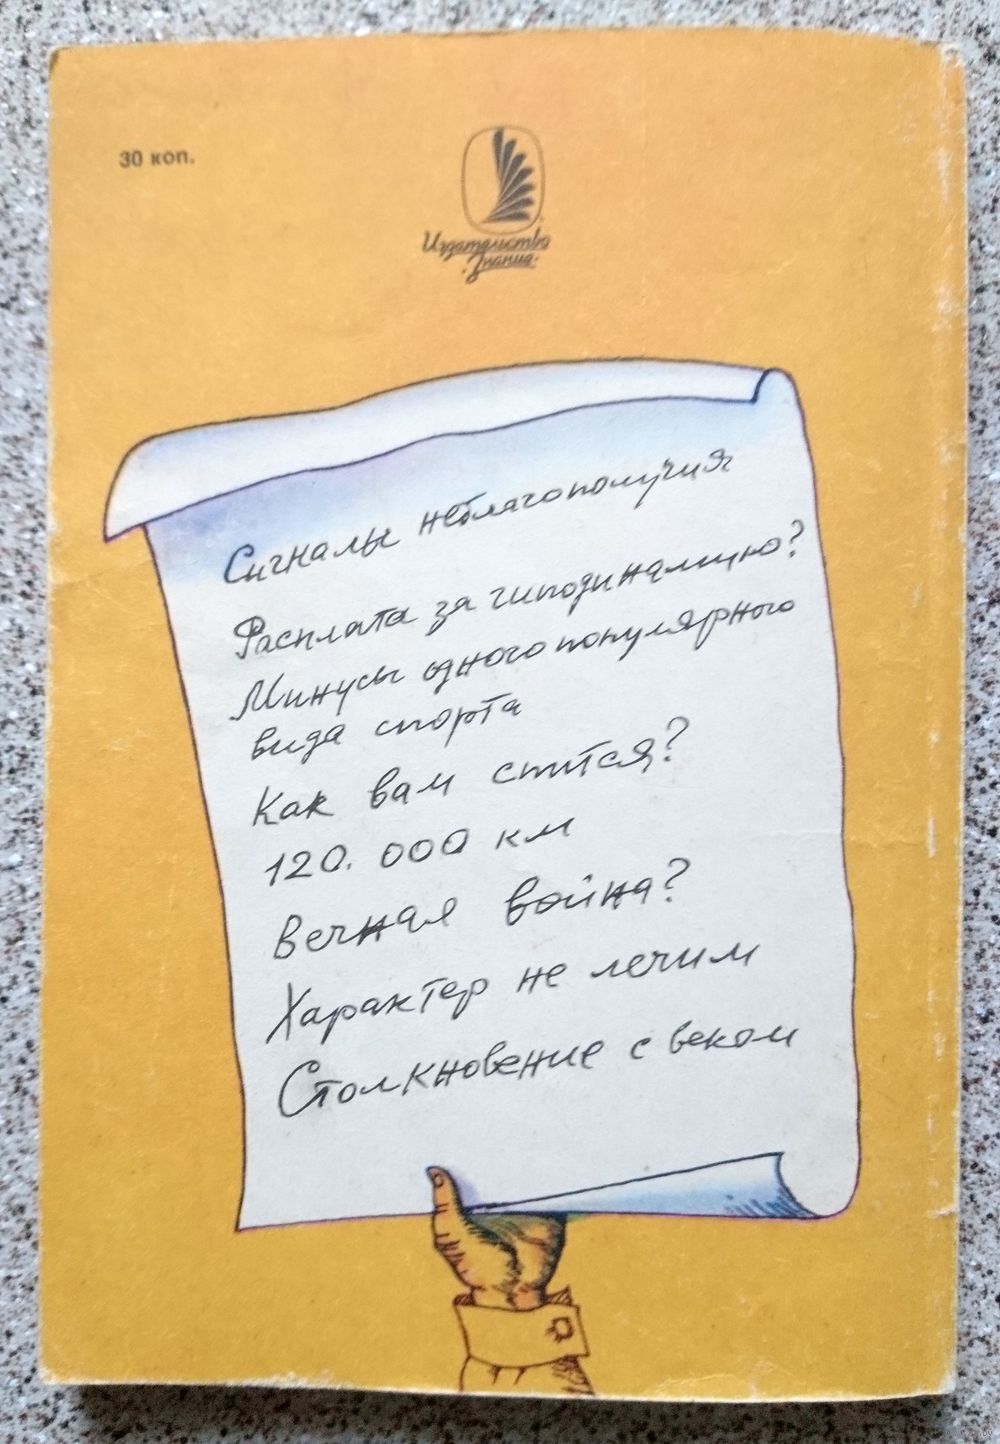 30 коп.
Издательство
·Знание·
Сигналы неблагополучия
Расплата за гиподинамию?
Минусы одного популярного
вида спорта
Как вам спится?
120.000 км
Вечная война?
Характер не лечим
Столкновение с веком